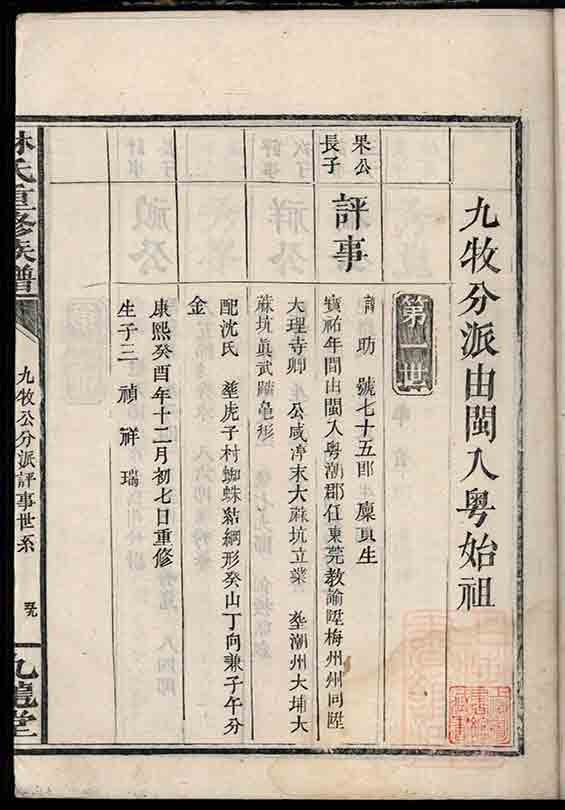 九牧分派由閩入粵始祖
第一世
果公
長子
評事
諱助 號七十五郎 廩貢生
寶祐年間由閩入粵潮郡任東莞教諭陞梅州州同陞
大理寺卿 公咸淳末大蔴坑立業 塟潮州大埔大
蔴坑眞武踏龜形
配沈氏 塟虎子村蜘蛛黏網形癸山丁向兼子午分
金
康熙癸酉年十二月初七日重修
生子三 禎 祥 瑞
林氏重修族譜
九牧公分派評事世系
九龍堂